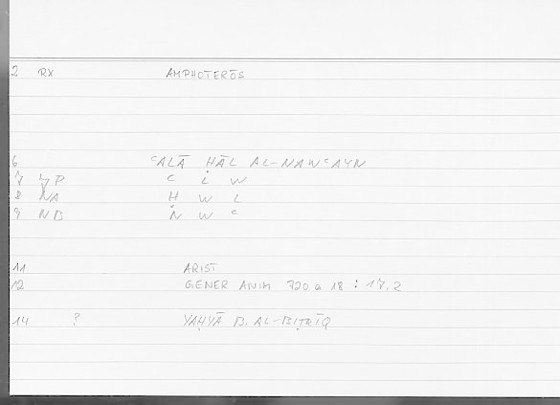 2 RX AMPHOTERŌS
6 ʿALĀ ḤĀL AL-NAWʿAYN
7 ʿ L W
8 NA Ḥ W L
9 NB N W ʿ
11 ARIST
12 GENER ANIM 720 a 18 : 17.2
14 ? YAḤYĀ B. AL-BIṬRĪQ